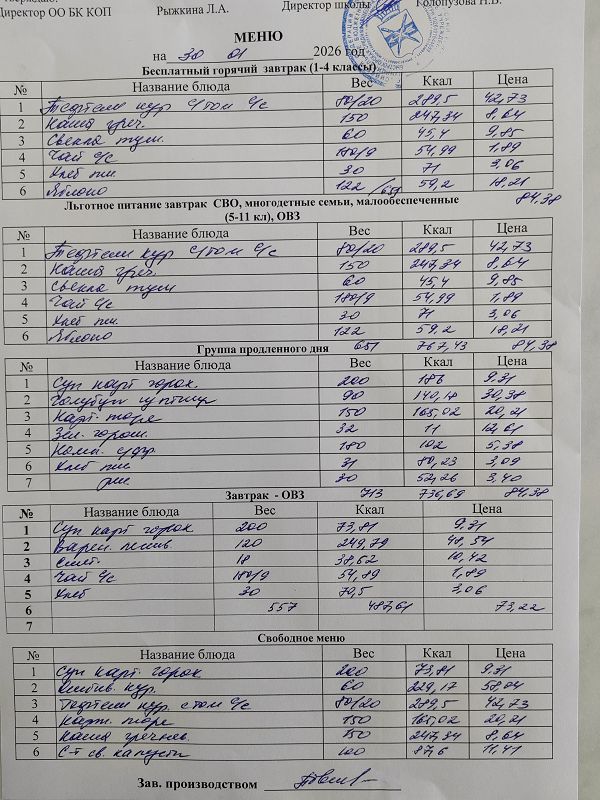 Директор ОО БК КОП Рыжкина Л.А. Директор школы Колопузова Н.В.
МЕНЮ
на 30 01 2026 год
Бесплатный горячий завтрак (1-4 классы)
№ Название блюда Вес Ккал Цена
1 Тефтели кур с/том с/с 80/20 289,5 42,73
2 Каша греч. 150 247,34 8,64
3 Свекла туш. 60 45,4 9,85
4 Чай с/с 180/9 54,99 1,89
5 Хлеб пш. 30 71 3,06
6 Яблоко 122 /651 59,2 18,21
84,38
Льготное питание завтрак СВО, многодетные семьи, малообеспеченные
(5-11 кл), ОВЗ
№ Название блюда Вес Ккал Цена
1 Тефтели кур с/том с/с 80/20 289,5 42,73
2 Каша греч. 150 247,34 8,64
3 Свекла туш 60 45,4 9,85
4 Чай с/с 180/9 54,99 1,89
5 Хлеб пш. 30 71 3,06
6 Яблоко 122 59,2 18,21
Группа продленного дня 651 767,43 84,38
№ Название блюда Вес Ккал Цена
1 Суп карт горох. 200 186 9,31
2 90 140,18 30,38
3 Карт. пюре 150 165,02 20,21
4 Зел. горош. 32 11 12,61
5 180 102 5,38
6 Хлеб пш 31 80,23 3,09
7 рж. 30 52,26 3,40
Завтрак - ОВЗ 713 736,69 84,38
№ Название блюда Вес Ккал Цена
1 Суп карт горох 200 73,81 9,31
2 Варен. 120 249,79 48,54
3 смет. 18 38,62 10,42
4 Чай с/с 180/9 54,89 1,89
5 Хлеб 30 70,5 3,06
6 557 487,61 73,22
7
Свободное меню
№ Название блюда Вес Ккал Цена
1 Суп карт. горох 200 73,81 9.31
2 кур. 60 229,17 58,04
3 Тефтели кур. с том с/с 80/20 289,5 42,73
4 Карт. пюре 150 165,02 20,21
5 Каша гречнев. 150 247,34 8,64
6 С-т св. капусты 100 87,6 11,41
Зав. производством